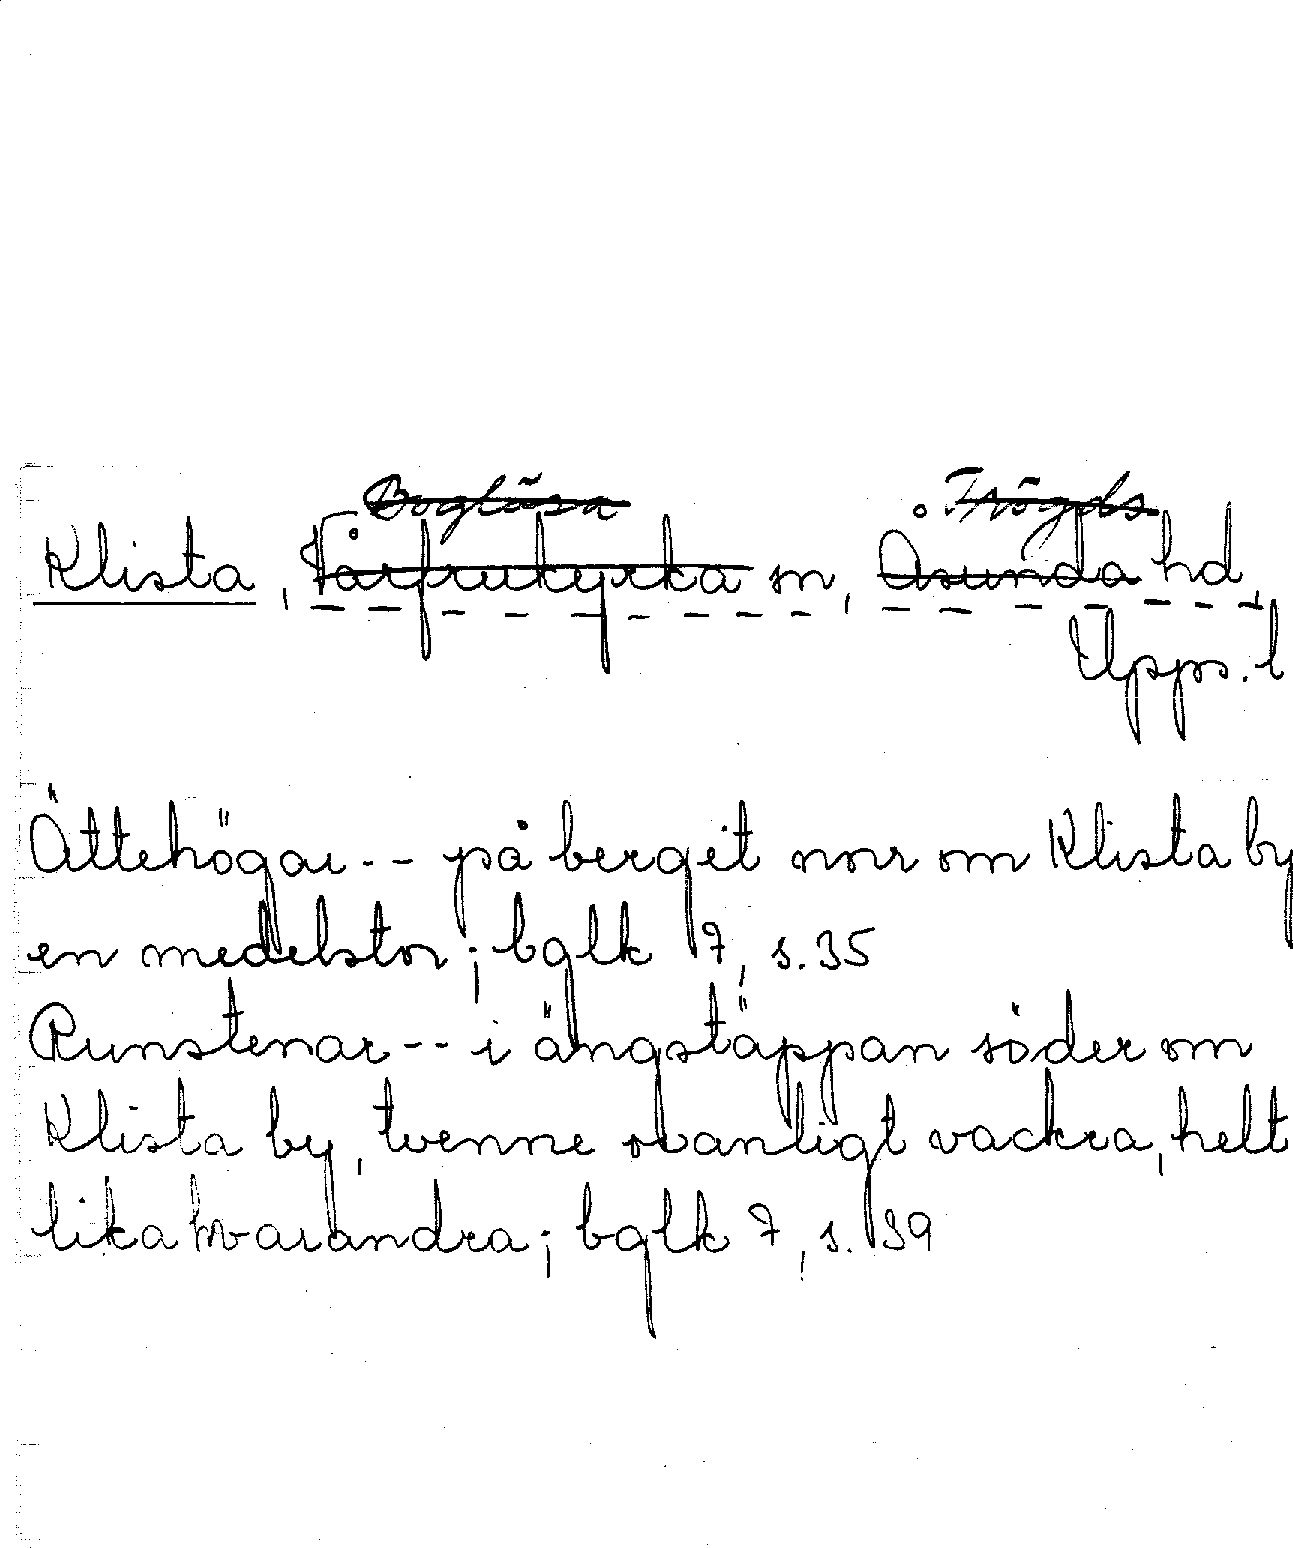 Boglösa Trögds
Klista, Vårfrukyrka sn, Åsunda hd,
Upps. l
Ättehögar -- på bergit norr om Klista by
en medelstor; bglk 7, s. 35
Runstenar -- i ängstäppan söder om
Klista by, tvenne ovanligt vackra, helt
lika hvarandra; bglk 7, s. 39